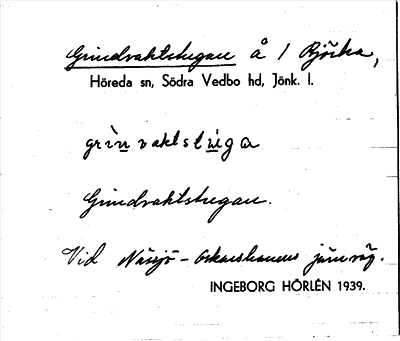 Grindvaktstugan å 1 Björka,
Höreda sn, Södra Vedbo hd, Jönk. l.
grìn vaktstúga
Grindvaktstugan.
Vid Nässjö - Oskarshamns järnväg.
INGEBORG HÖRLÉN 1939.